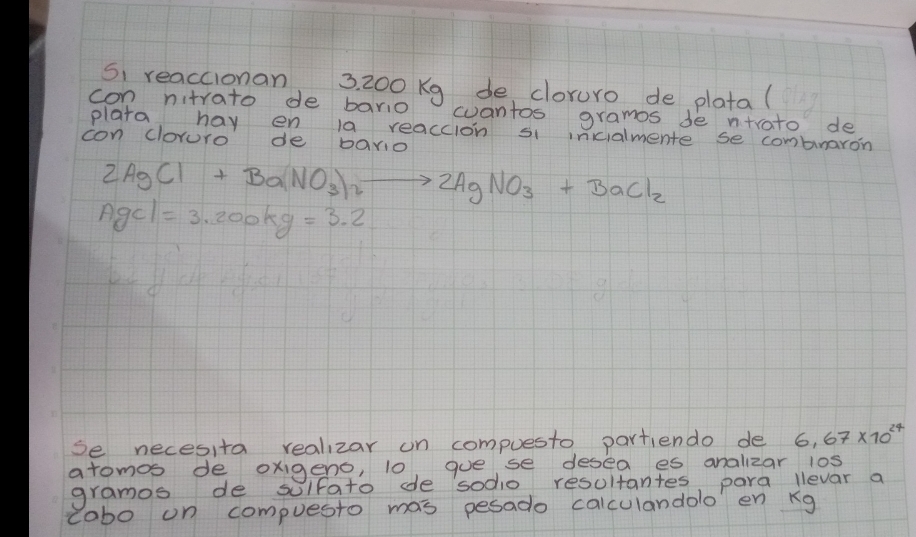 Si reaccionan 3.200 Kg de cloruro de plata (
con nitrato de bario cuantos gramos de ntrato de
plata hay en la reacción si incialmente se combinarón
con cloruro de bario
2AgCl + Ba(NO₃)₂ → 2AgNO₃ + BaCl₂
Agcl = 3.200kg = 3.2
Se necesita realizar un compuesto partiendo de 6,67 x 10²⁴
atomos de oxigeno, lo que se desea es analizar los
gramos de sulfato de sodio resultantes para llevar a
cabo un compuesto más pesado calculandolo en Kg